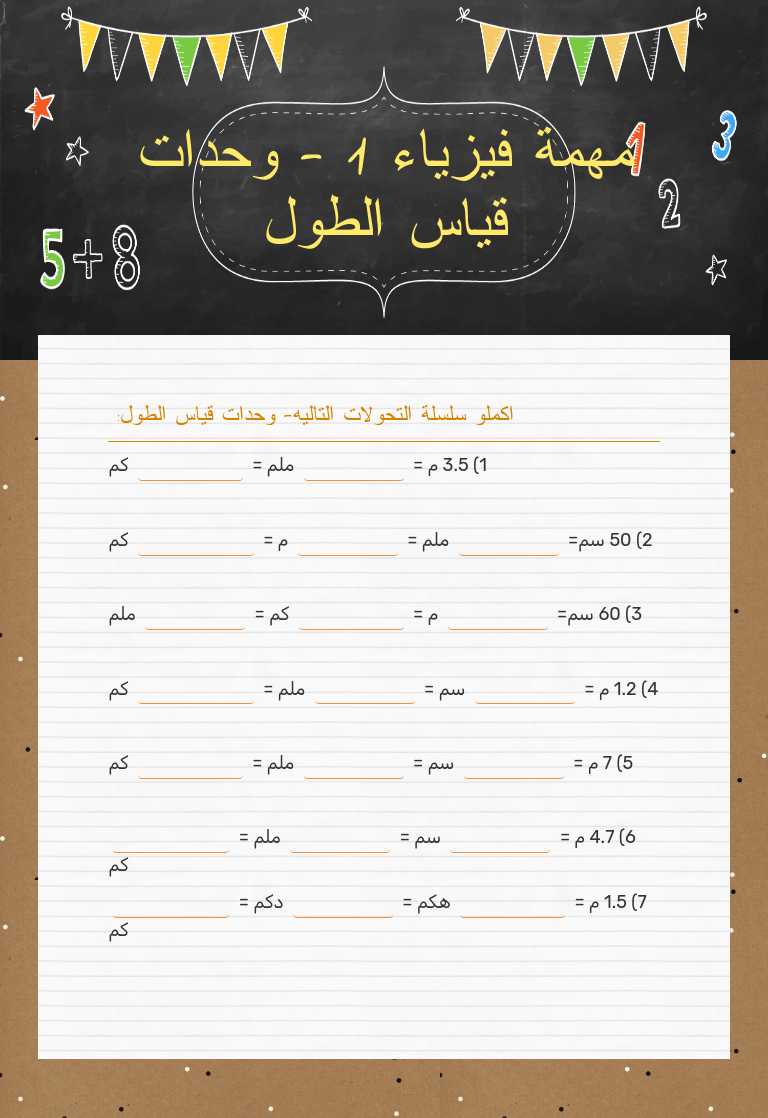 مهمة فيزياء 1 - وحدات
قياس الطول
1
2
3
5+8
اكملو سلسلة التحولات التاليه- وحدات قياس الطول:
1) 3.5 م = ملم = كم
2) 50 سم= ملم = م = كم
3) 60 سم= م = كم = ملم
4) 1.2 م = سم = ملم = كم
5) 7 م = سم = ملم = كم
6) 4.7 م = سم = ملم =
كم
7) 1.5 م = هكم = دكم =
كم